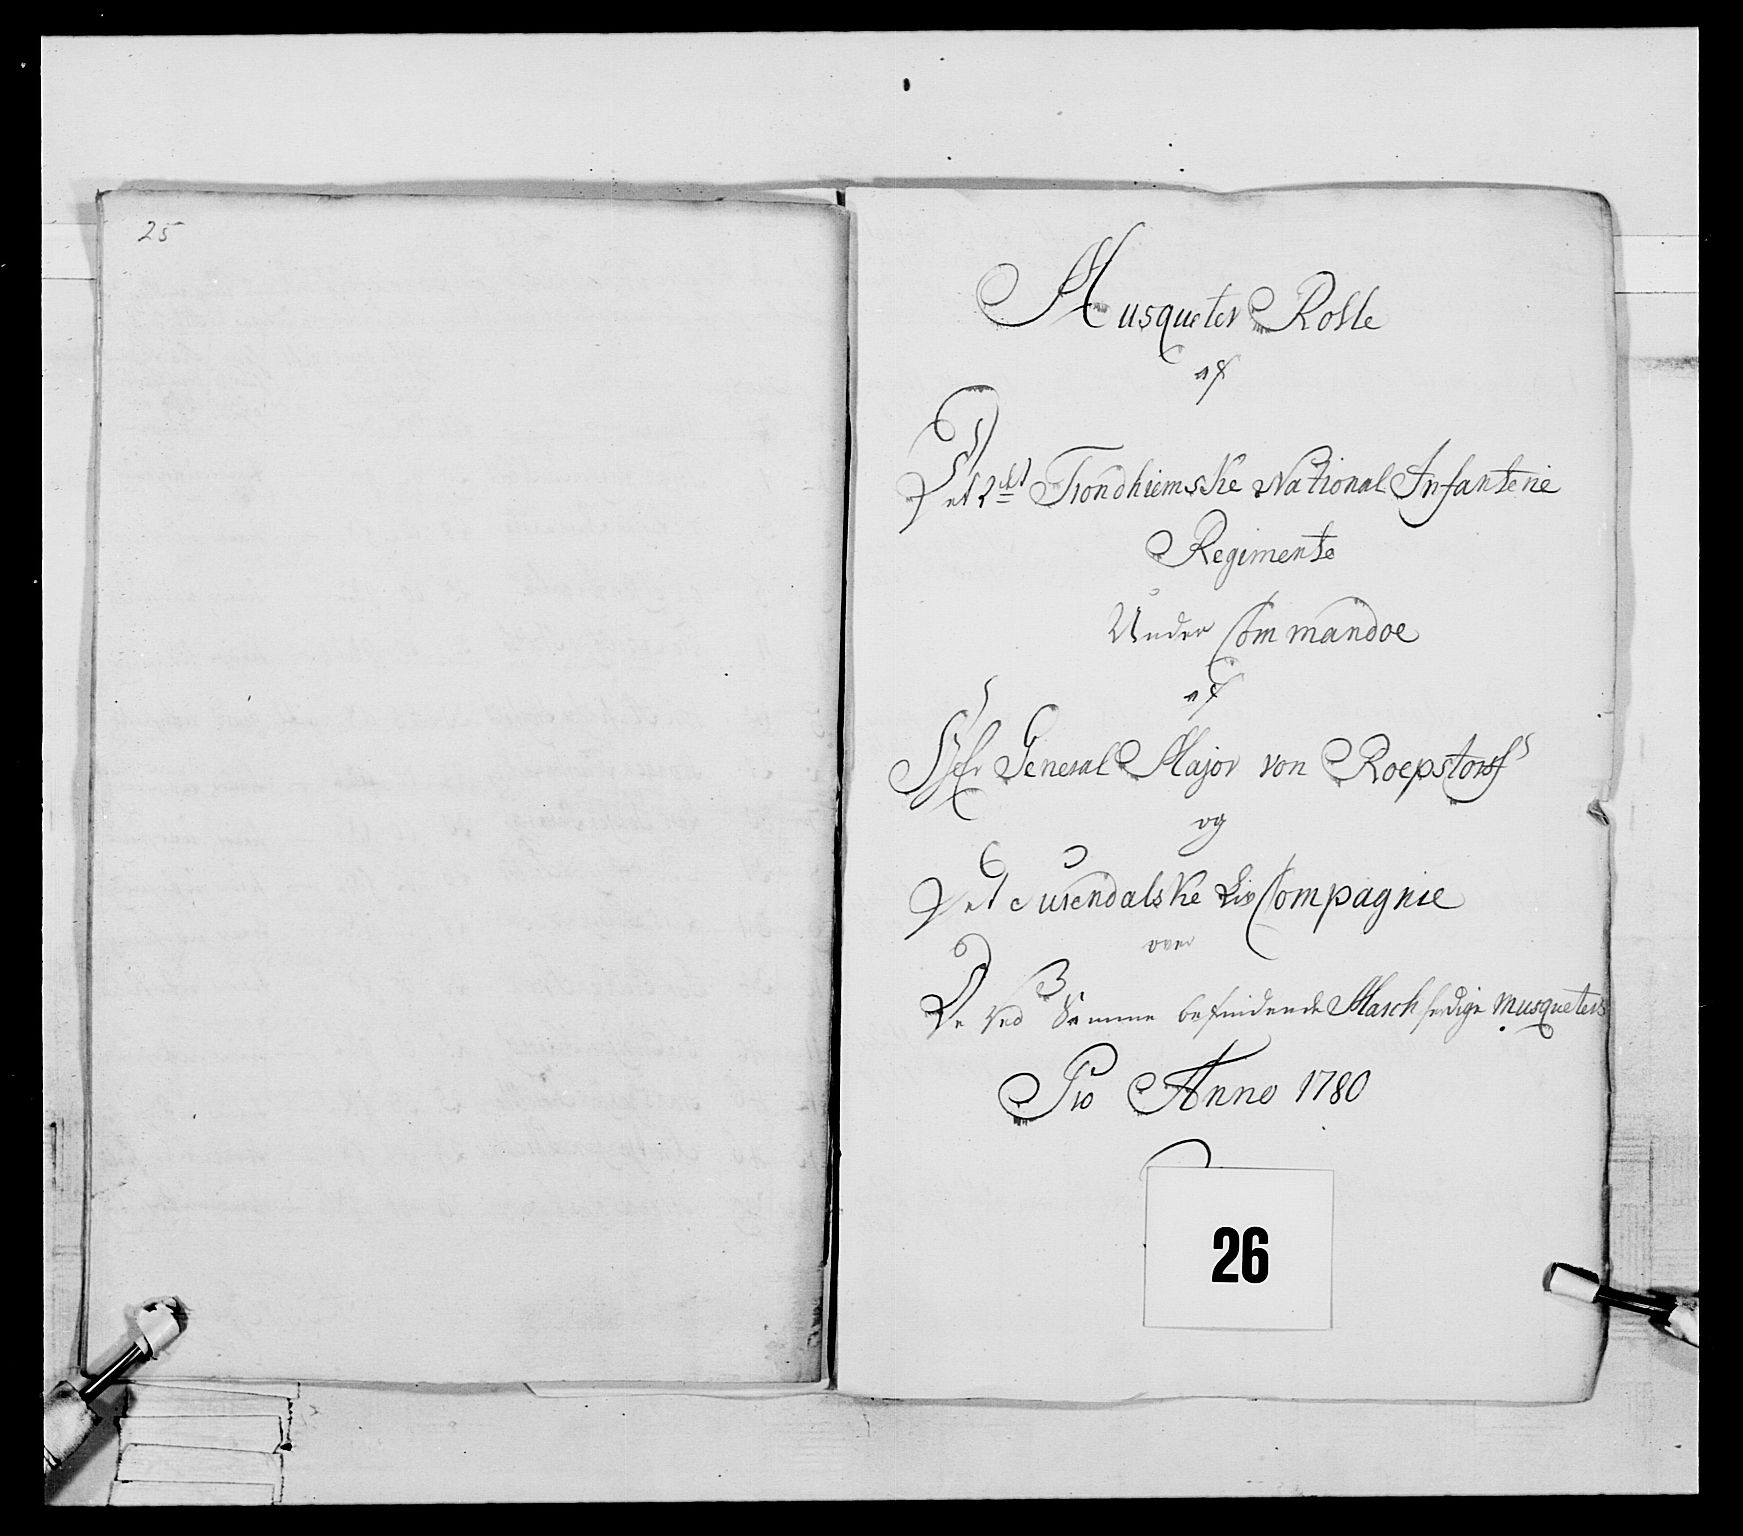 25
Musqueter Rolle
af
Det 2det Trondhiemske National Infanterie
Regimente
Under Commandoe
af
Hr General Major von Roepstorf
og
Det Surendalske Liv Compagnie
over
De ved Samme befindende Marsch ferdige Musqueters
Pro Anno 1780
26